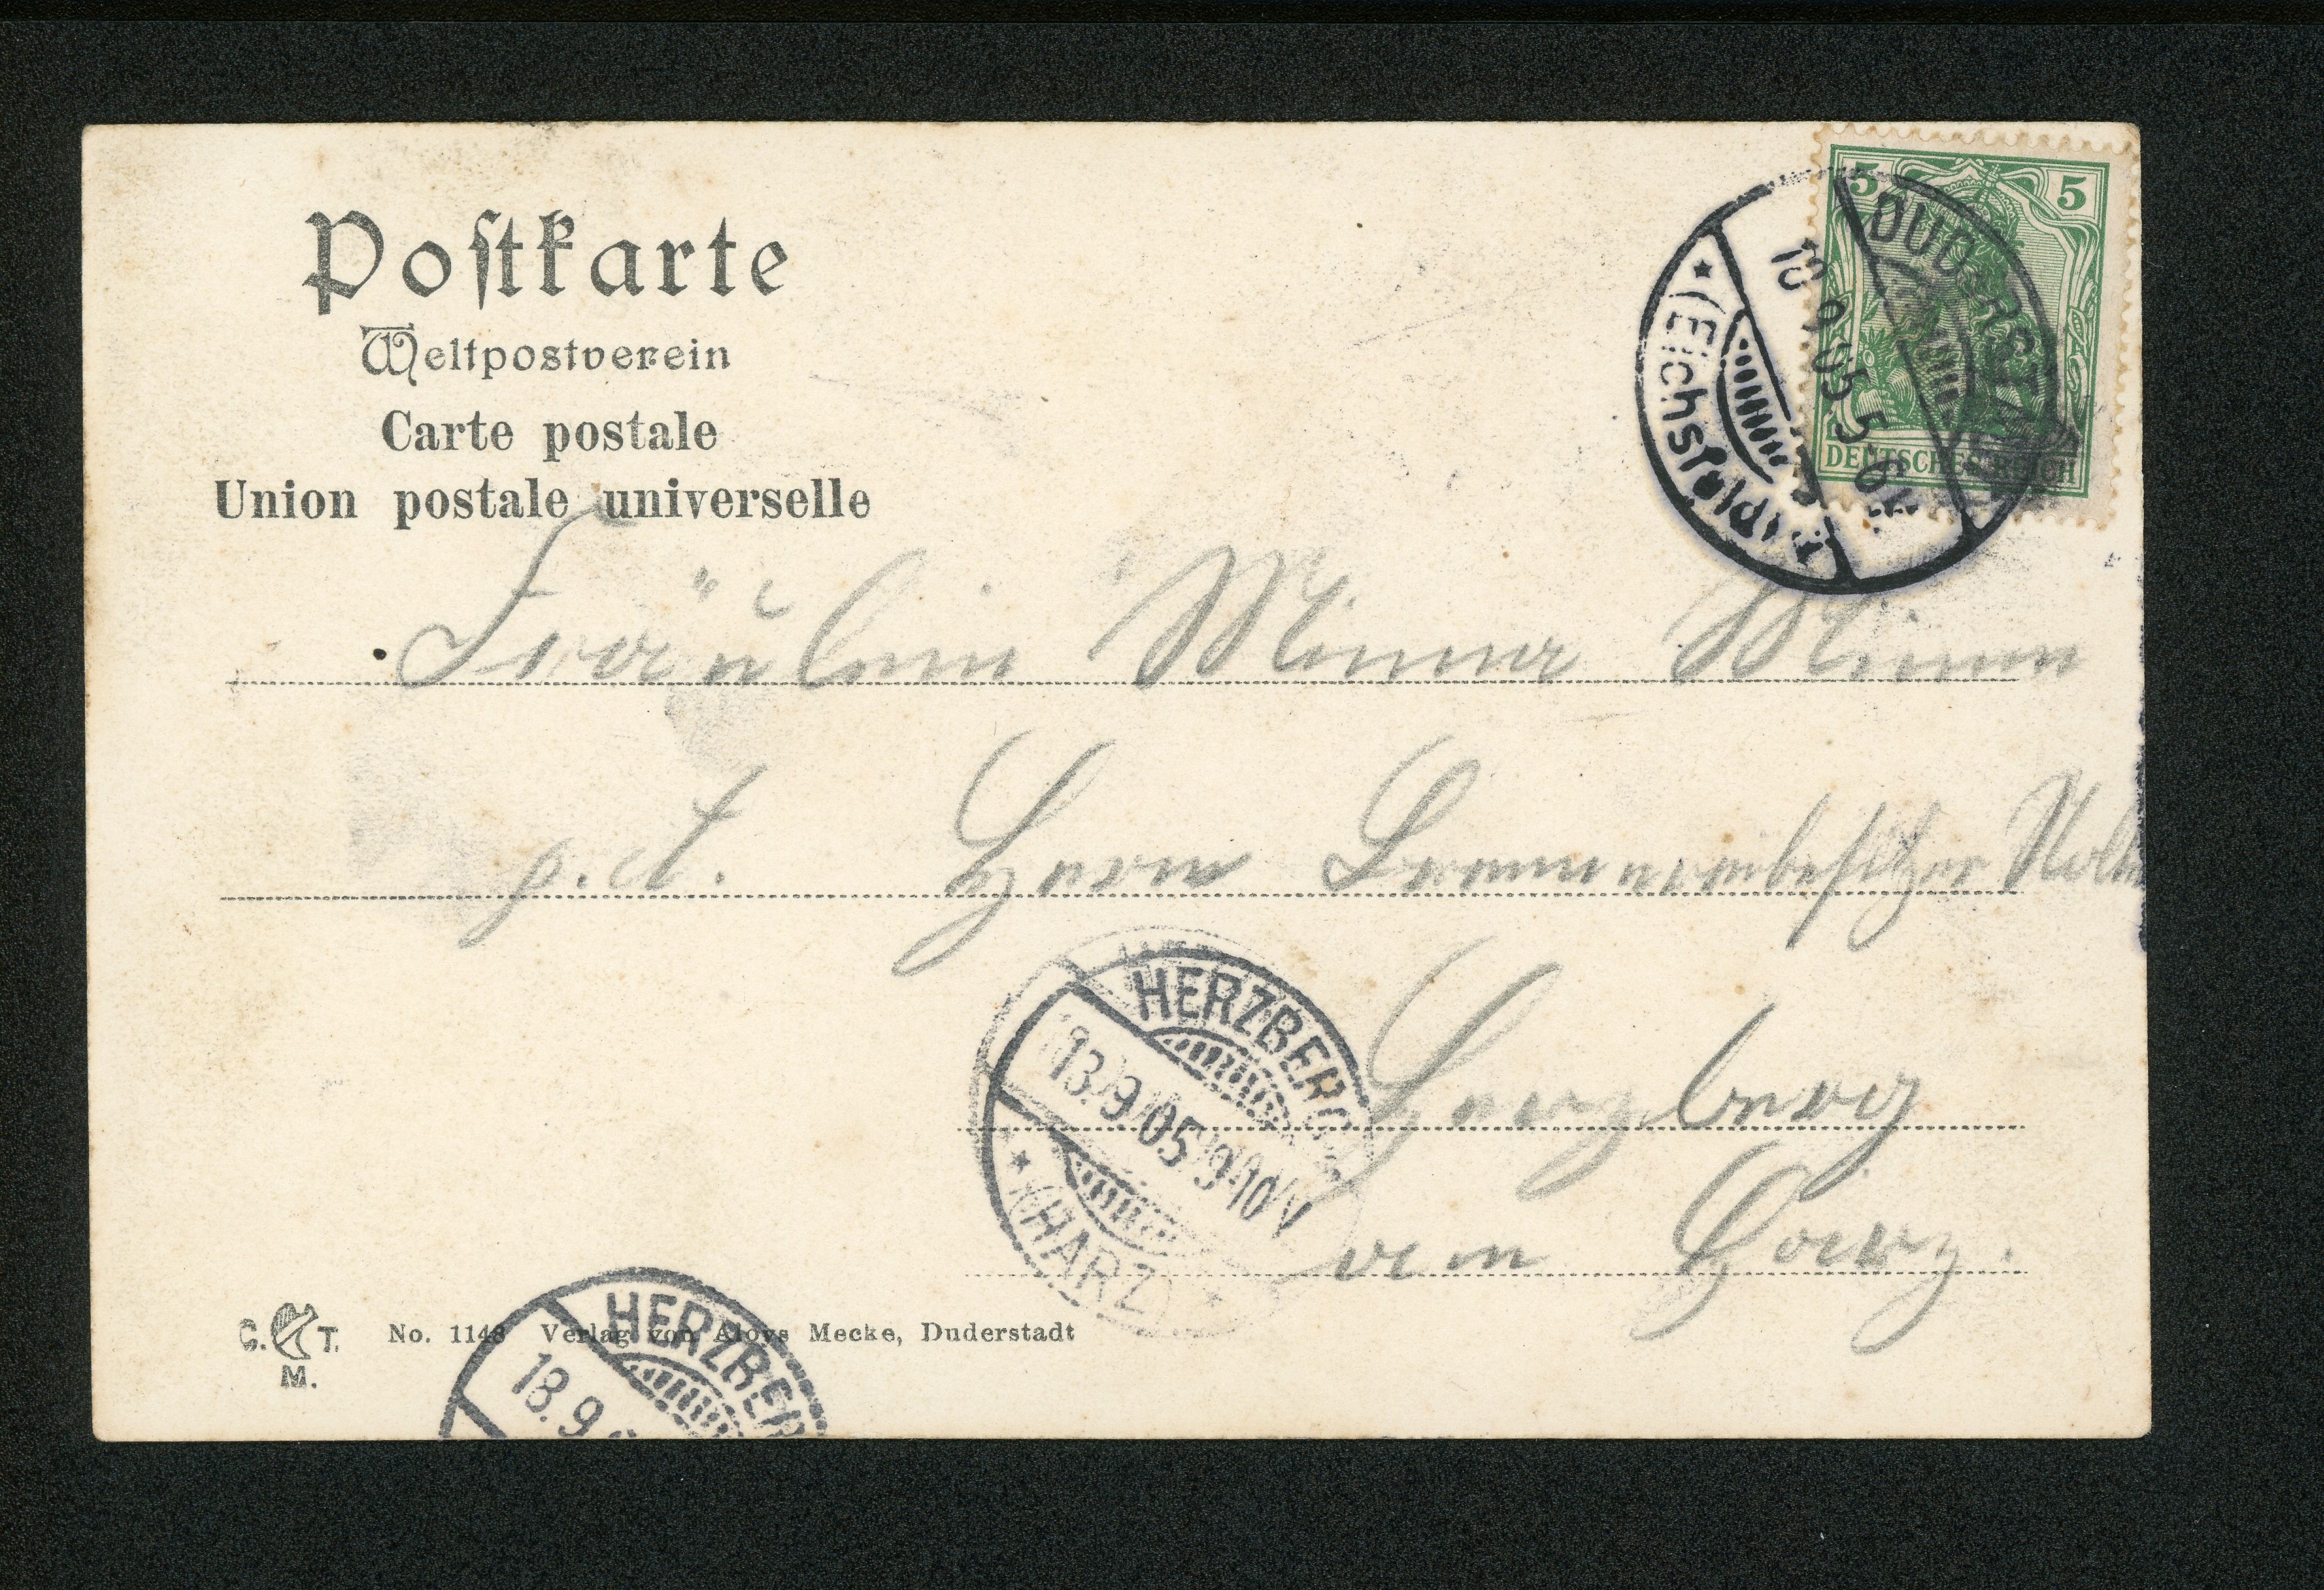 Postkarte
Weltpostverein
Carte postale
Union postale universelle
5 5
DEUTSCHES REICH
DUDERSTADT
(Eichsfeld)
9.05.5-6
Fräulein Minna
p. A. Herrn Brauereibesitzer
HERZBERG
13/9/05/9-10/V
(HARZ)
Herzberg
am Harz.
C. T.
M.
No. 1148 Verlag von Aloys Mecke, Duderstadt
HERZBER
13.9